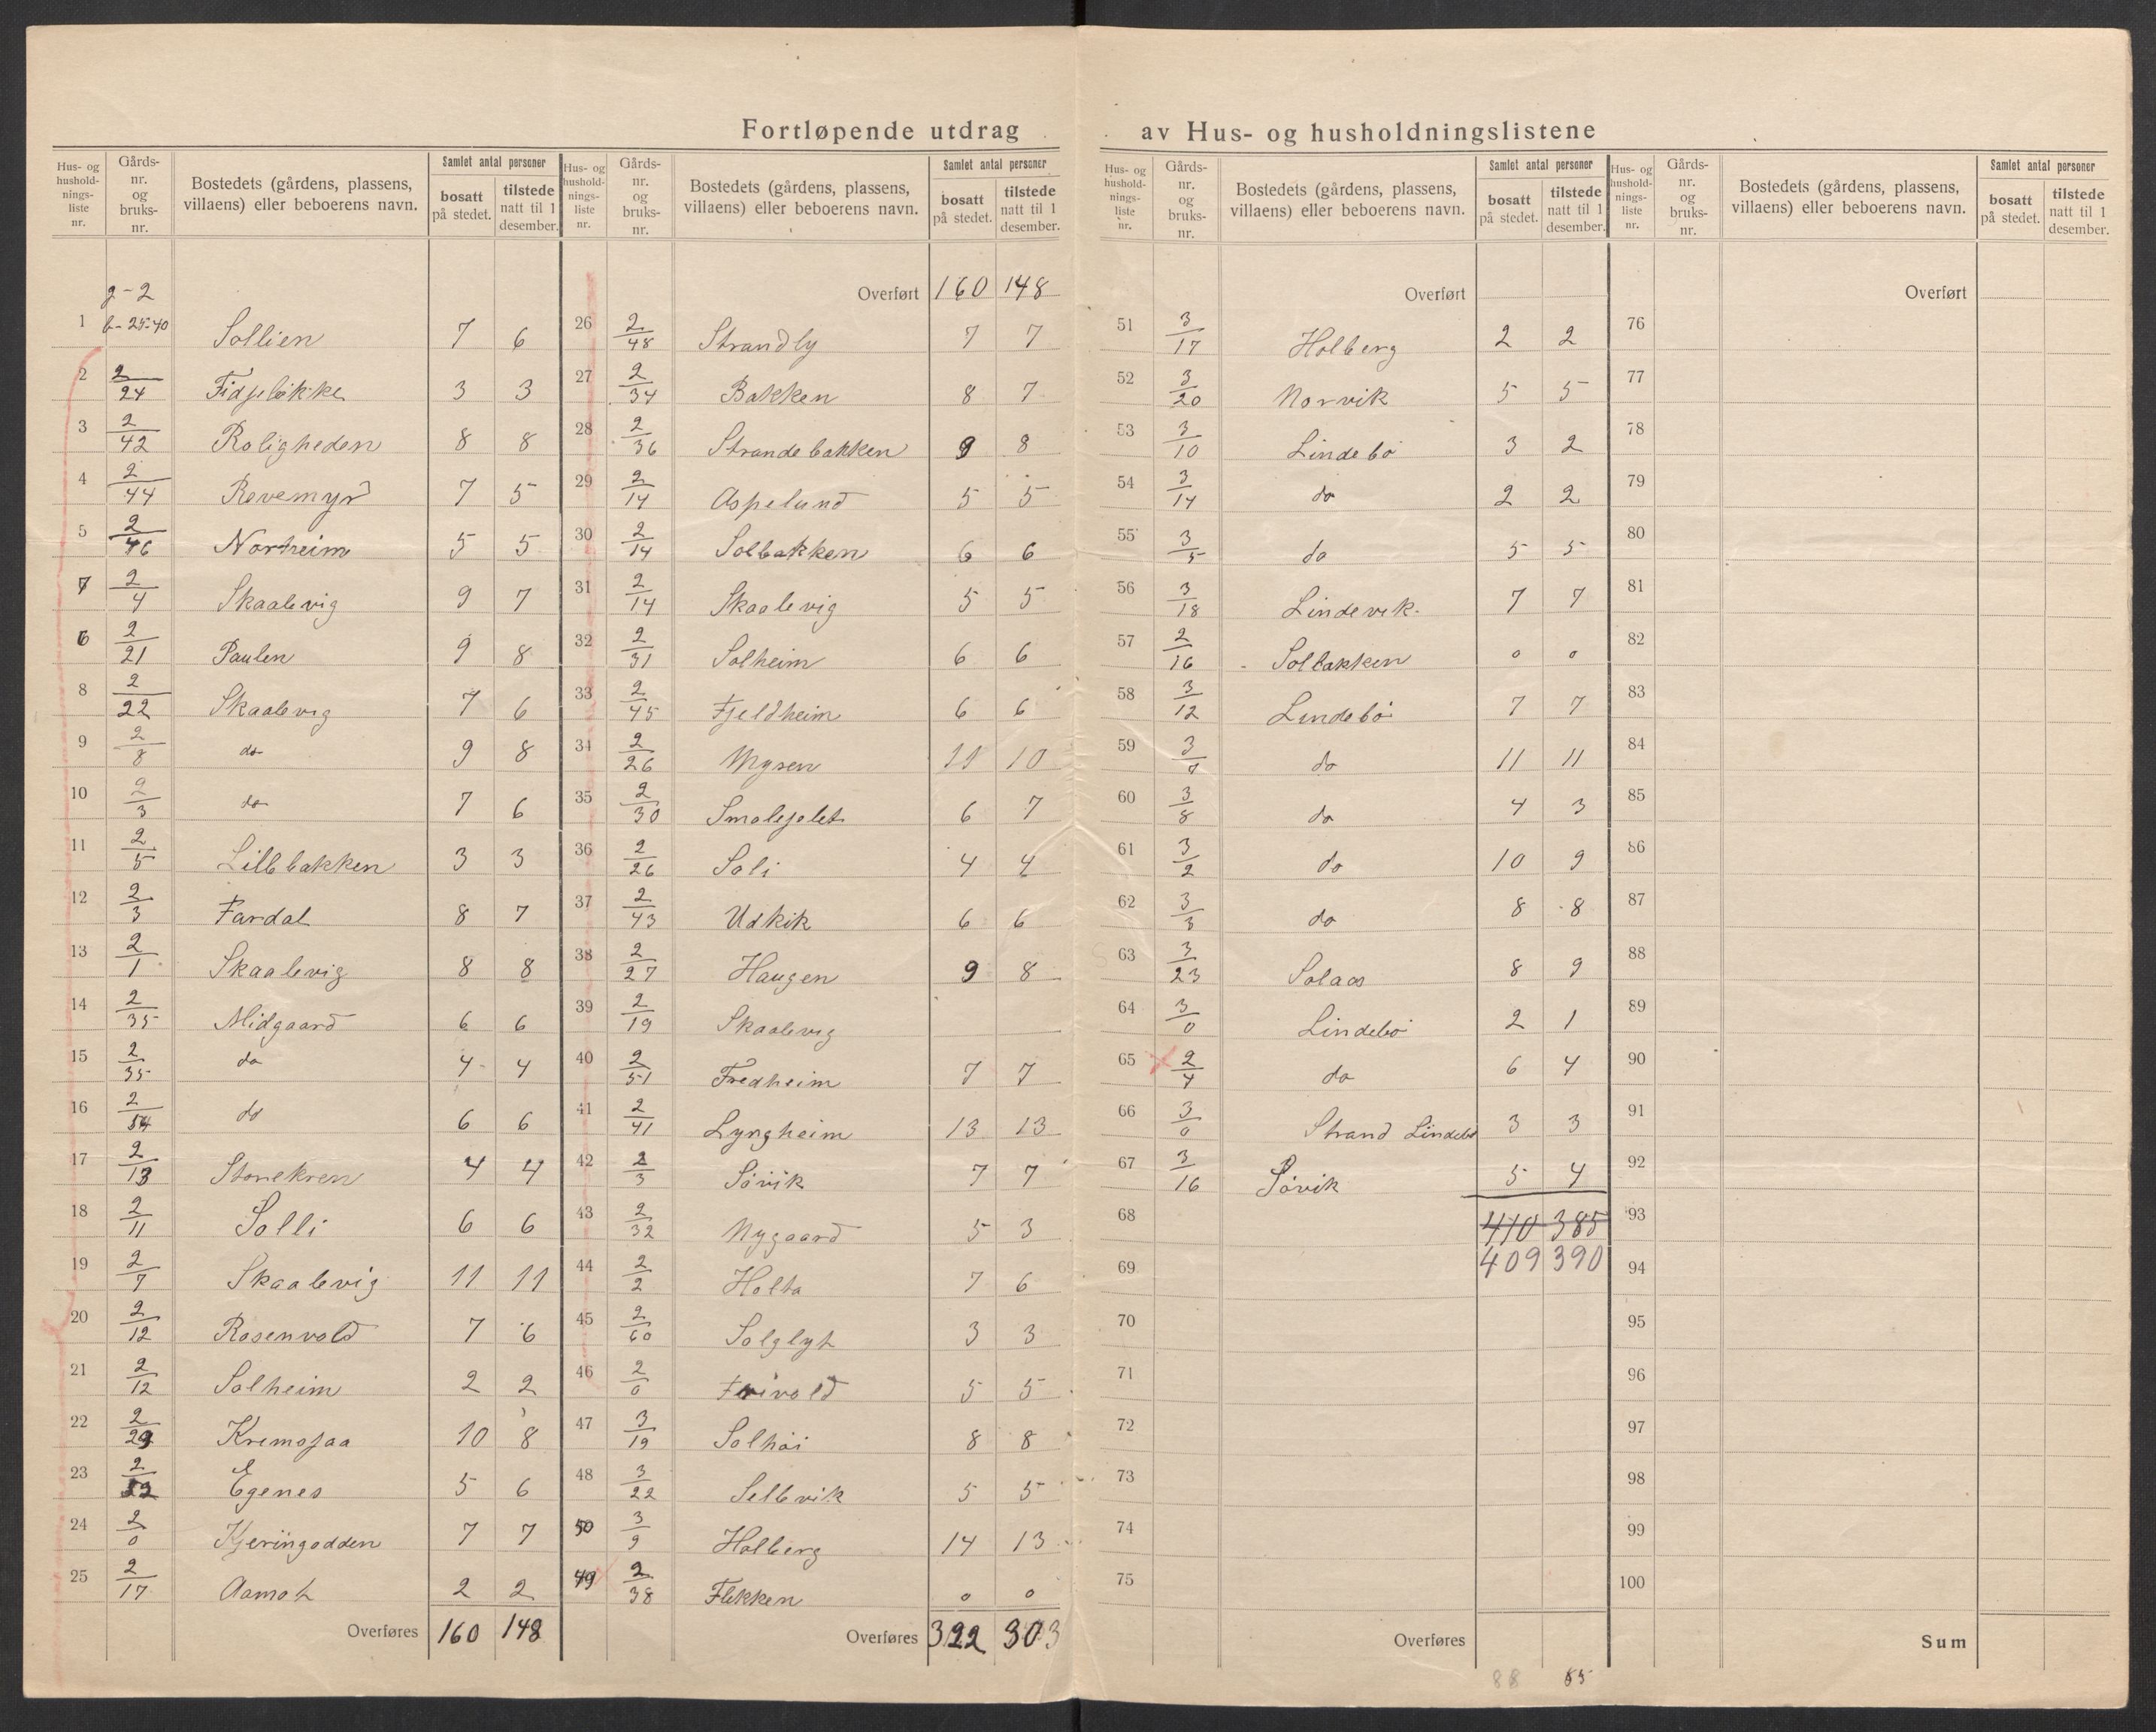 Fortløpende utdrag av Hus- og husholdningslistene
Hus- og husholdningsliste nr. | Gårds-nr. og bruks-nr. | Bostedets (gårdens, plassens, villaens) eller beboerens navn. | Samlet antal personer | bosatt på stedet. | tilstede natt til 1 desember.
g-2
1 b-25-40 Sollien 7 6
2 2/24 Fidjeløkke 3 3
3 2/42 Roligheden 8 8
4 2/44 Revemyr 7 5
5 2/46 Nortreim 5 5
7 2/4 Skaalevig 9 7
6 2/21 Paulen 9 8
8 2/22 Skaalevig 7 6
9 2/8 do 9 8
10 2/3 do 7 6
11 2/5 Lillebakken 3 3
12 2/3 Fardal 8 7
13 2/1 Skaalevig 8 8
14 2/35 Midgaard 6 6
15 2/35 do 4 4
16 2/54 do 6 6
17 2/13 Stenekren 4 4
18 2/11 Solli 6 6
19 2/7 Skaalevig 11 11
20 2/12 Rosenvold 7 6
21 2/12 Solheim 2 2
22 2/29 Kremojaa 10 8
23 2/52 Egenes 5 6
24 2/0 Kjeringodden 7 7
25 2/17 Aamot 2 2
Overføres 160 148
Hus- og husholdningsliste nr. | Gårds-nr. og bruks-nr. | Bostedets (gårdens, plassens, villaens) eller beboerens navn. | Samlet antal personer | bosatt på stedet. | tilstede natt til 1 desember.
Overført 160 148
26 2/48 Strandly 7 7
27 2/34 Bakken 8 7
28 2/36 Strandebakken 9 8
29 2/14 Aspelund 5 5
30 2/14 Solbakken 6 6
31 2/14 Skaalevig 5 5
32 2/31 Solheim 6 6
33 2/45 Fjeldheim 6 6
34 2/26 Mysen 11 10
35 2/30 Smalejelet 6 7
36 2/26 Soli 4 4
37 2/43 Udkik 6 6
38 2/27 Haugen 9 8
39 2/19 Skaalevig
40 2/51 Fredheim 7 7
41 2/41 Lyngheim 13 13
42 2/3 Søvik 7 7
43 2/32 Nygaard 5 3
44 2/2 Holta 7 6
45 2/60 Solglyt 3 3
46 2/0 Frivold 5 5
47 3/19 Solhøi 8 8
48 3/22 Sellevik 5 5
50 3/9 Holberg 14 13
49 2/38 Flekken 0 0
Overføres 322 303
Hus- og husholdningsliste nr. | Gårds-nr. og bruks-nr. | Bostedets (gårdens, plassens, villaens) eller beboerens navn. | Samlet antal personer | bosatt på stedet. | tilstede natt til 1 desember.
Overført
51 3/17 Holberg 2 2
52 3/20 Norvik 5 5
53 3/10 Lindebø 3 2
54 3/14 do 2 2
55 3/5 do 5 5
56 3/18 Lindevik 7 7
57 2/16 Solbakken 0 0
58 3/12 Lindebø 7 7
59 3/7 do 11 11
60 3/8 do 4 3
61 3/2 do 10 9
62 3/3 do 8 8
63 3/23 Solaas 8 9
64 3/0 Lindebø 2 1
65 2/4 do 6 4
66 3/0 Strand Lindebø 3 3
67 3/16 Søvik 5 4
68 410 385
69 409 390
70
71
72
73
74
75
Overføres
88 85
Hus- og husholdningsliste nr. | Gårds-nr. og bruks-nr. | Bostedets (gårdens, plassens, villaens) eller beboerens navn. | Samlet antal personer | bosatt på stedet. | tilstede natt til 1 desember.
Overført
76
77
78
79
80
81
82
83
84
85
86
87
88
89
90
91
92
93
94
95
96
97
98
99
100
Sum